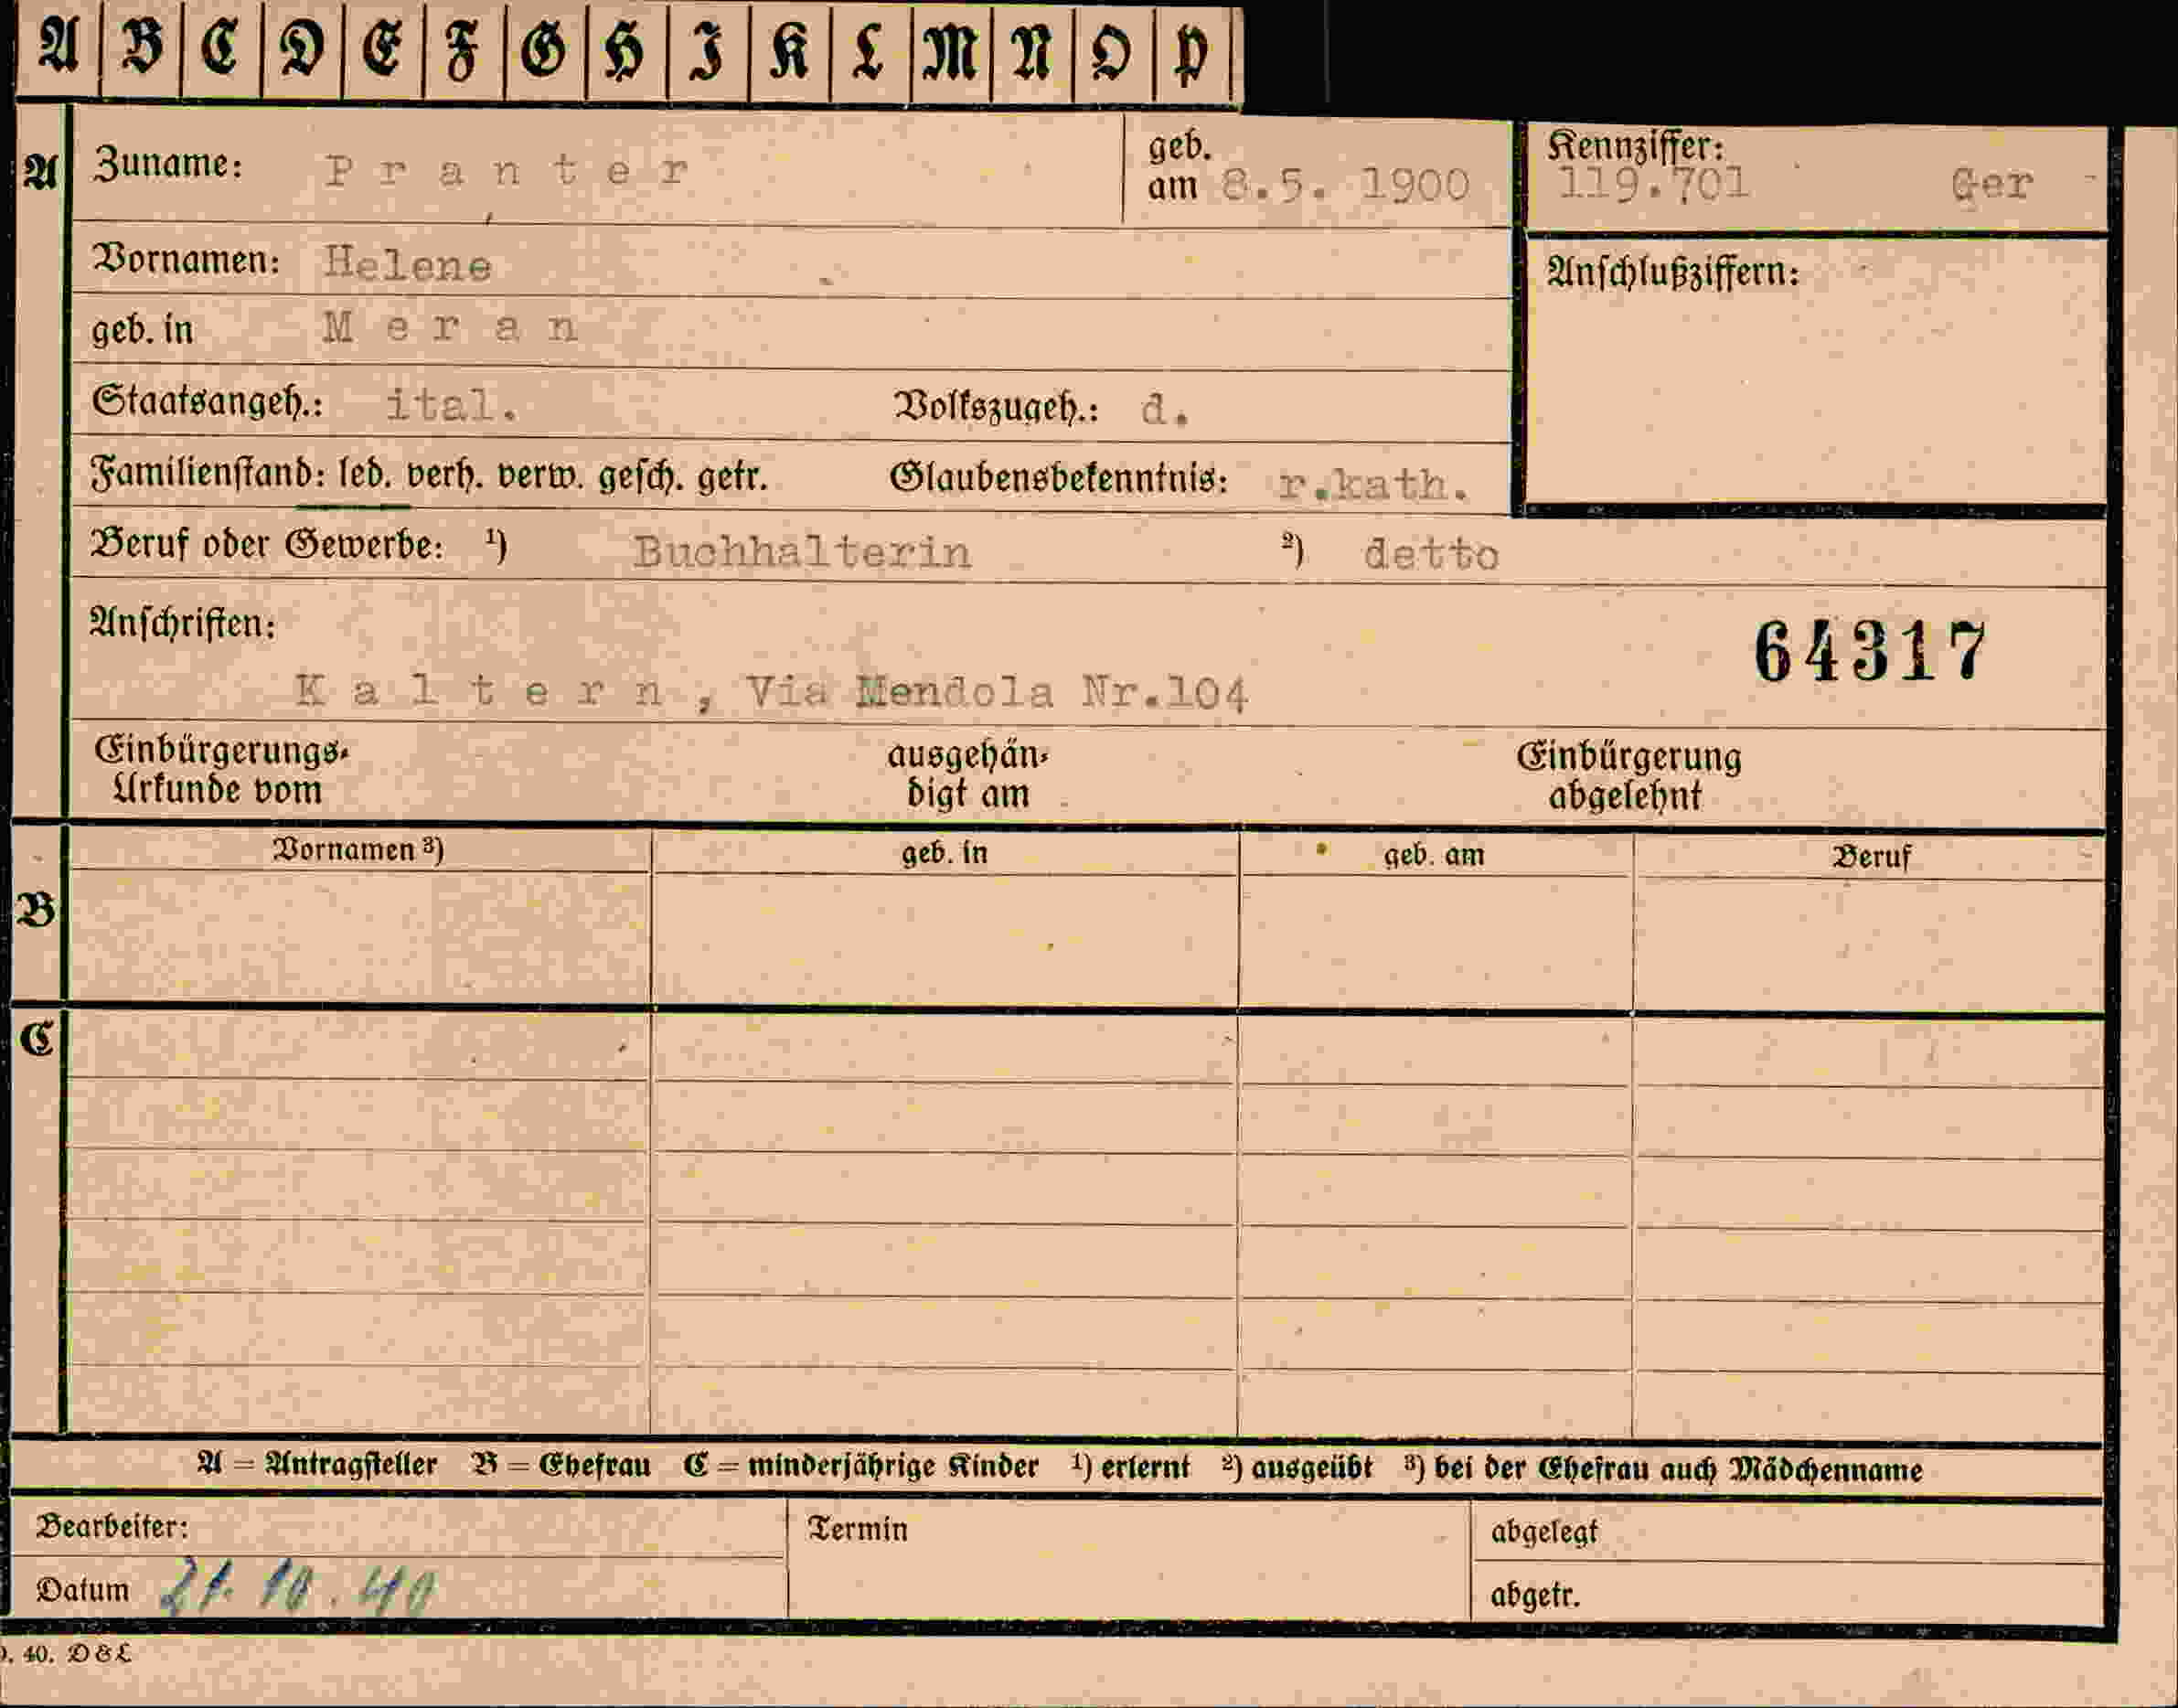 A B C D E F G H I K L M N O P
A Zuname: Pranter geb. am 8.5. 1900 Kennziffer: 119.701 Ger
Vornamen: Helene Anschlußziffern:
geb. in Meran
Staatsangeh.: ital. Volkszugeh.: d.
Familienstand: led. verh. verw. gesch. getr. Glaubensbekenntnis: r.kath.
Beruf oder Gewerbe: ¹) Buchhalterin ²) detto
Anschriften: 64317
Kaltern, Via Mendola Nr.104
Einbürgerungs- ausgehän- Einbürgerung
Urkunde vom digt am abgelehnt
Vornamen ³) geb. in geb. am Beruf
B
C
A = Antragsteller B = Ehefrau C = minderjährige Kinder ¹) erlernt ²) ausgeübt ³) bei der Ehefrau auch Mädchenname
Bearbeiter: Termin abgelegt
Datum 21.10.40 abgetr.
. 40. D&L